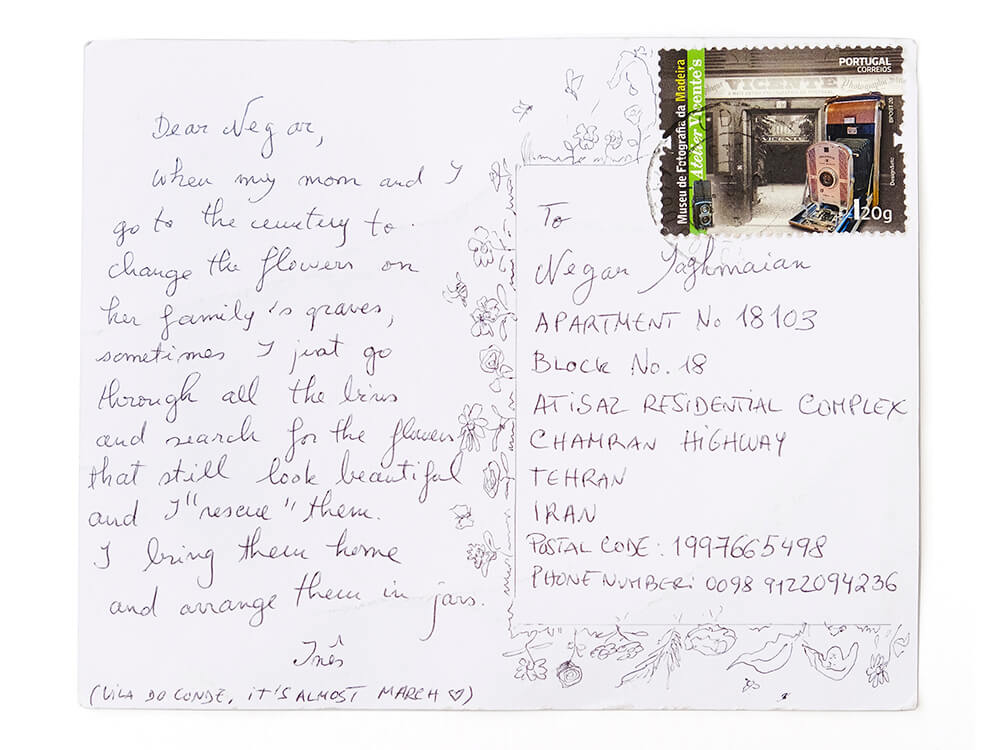 Dear Negar,
When my mom and I
go to the cemetery to
change the flowers on
her family's graves,
sometimes I just go
through all the bins
and search for the flowers
that still look beautiful
and I "rescue" them.
I bring them home
and arrange them in jars.
Inês
(VILA DO CONDE, IT'S ALMOST MARCH ♡)
PORTUGAL
CORREIOS
Museu de Fotografia da Madeira
Atelier Vicente's
VICENTE
VICENTE
A20g
To
Negar Yaghmaian
APARTMENT No 18103
BLOCK No. 18
ATISAZ RESIDENTIAL COMPLEX
CHAMRAN HIGHWAY
TEHRAN
IRAN
POSTAL CODE: 1997665498
PHONE NUMBER: 0098 9122094236